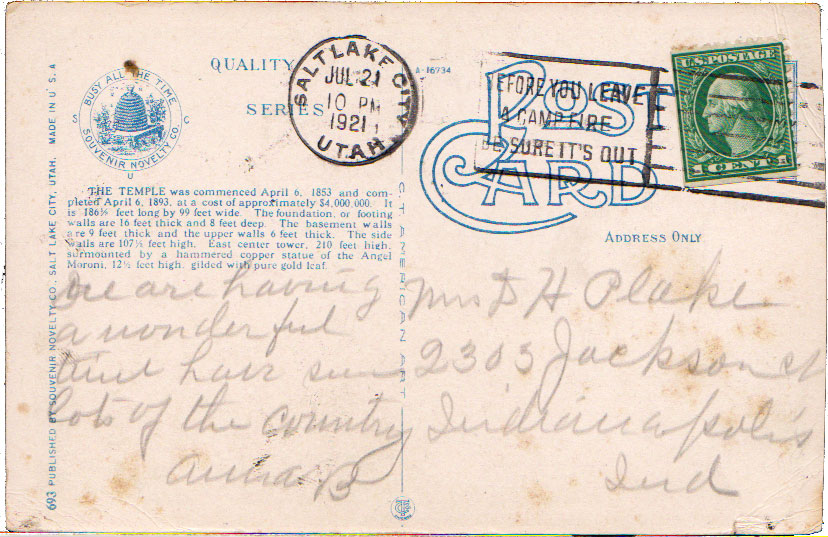 693 PUBLISHED BY SOUVENIR NOVELTY CO., SALT LAKE CITY, UTAH. MADE IN U.S.A
BUSY ALL THE TIME
SOUVENIR NOVELTY CO.
S C
U
QUALITY
SERIES
A-16734
SALT LAKE CITY
JUL 21
10 PM
1921
UTAH
BEFORE YOU LEAVE
A CAMP FIRE
BE SURE IT'S OUT
U.S. POSTAGE
1 CENT 1
POST
CARD
ADDRESS ONLY
THE TEMPLE was commenced April 6, 1853 and com-
pleted April 6, 1893, at a cost of approximately $4,000,000. It
is 186½ feet long by 99 feet wide. The foundation, or footing
walls are 16 feet thick and 8 feet deep. The basement walls
are 9 feet thick and the upper walls 6 feet thick. The side
walls are 107½ feet high. East center tower, 210 feet high,
surmounted by a hammered copper statue of the Angel
Moroni, 12½ feet high, gilded with pure gold leaf.
CT AMERICAN ART
We are having
a wonderful
time have seen
lots of the country
Anna B
Mrs D H Plake
2303 Jackson st
Indianapolis
Ind